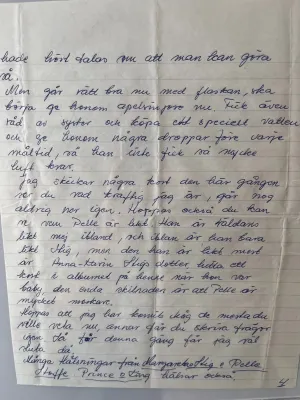 hade hört talas om att man kan göra
så.
Men går rätt bra nu med flaskan, ska
börja ge honom apelsinpure nu. Fick även
råd av syster och köpa ett speciell vatten
och ge honom några droppar före varje
måltid, så han inte fick så mycke
luft kvar.
Jag skickar några kort den här gången
ser du vad kraftig jag är, går nog
aldrig ner igen. Hoppas också du kan
se vem Pelle är lik. Han är Håldans
likt mej ibland, och ibland är han bara
likt Stig, men den han är likt mest
är Anna-Karin Stigs dotter, hitta ett
kort i albumet på henne när hon var
baby, den enda skillnaden är att Pelle är
mycket mörkare.
Hoppas att jag har kommit ihåg de mesta du
ville veta nu, annars får du skriva frågor
igen. Så för denna gång får jag väl
sluta då.
Många Hälsningar från Stig o Pelle
Prince o hälsar också
4